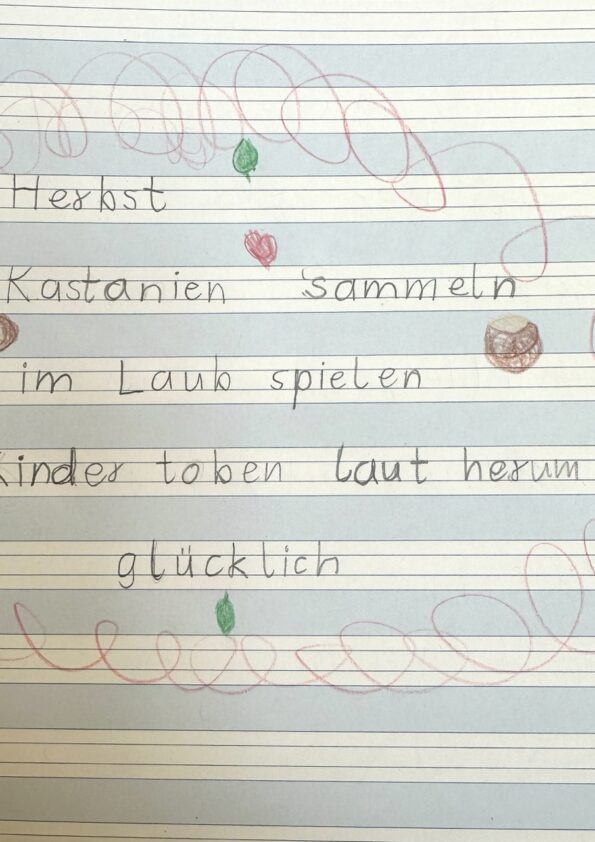 Herbst
Kastanien sammeln
im Laub spielen
Kinder toben laut herum
glücklich